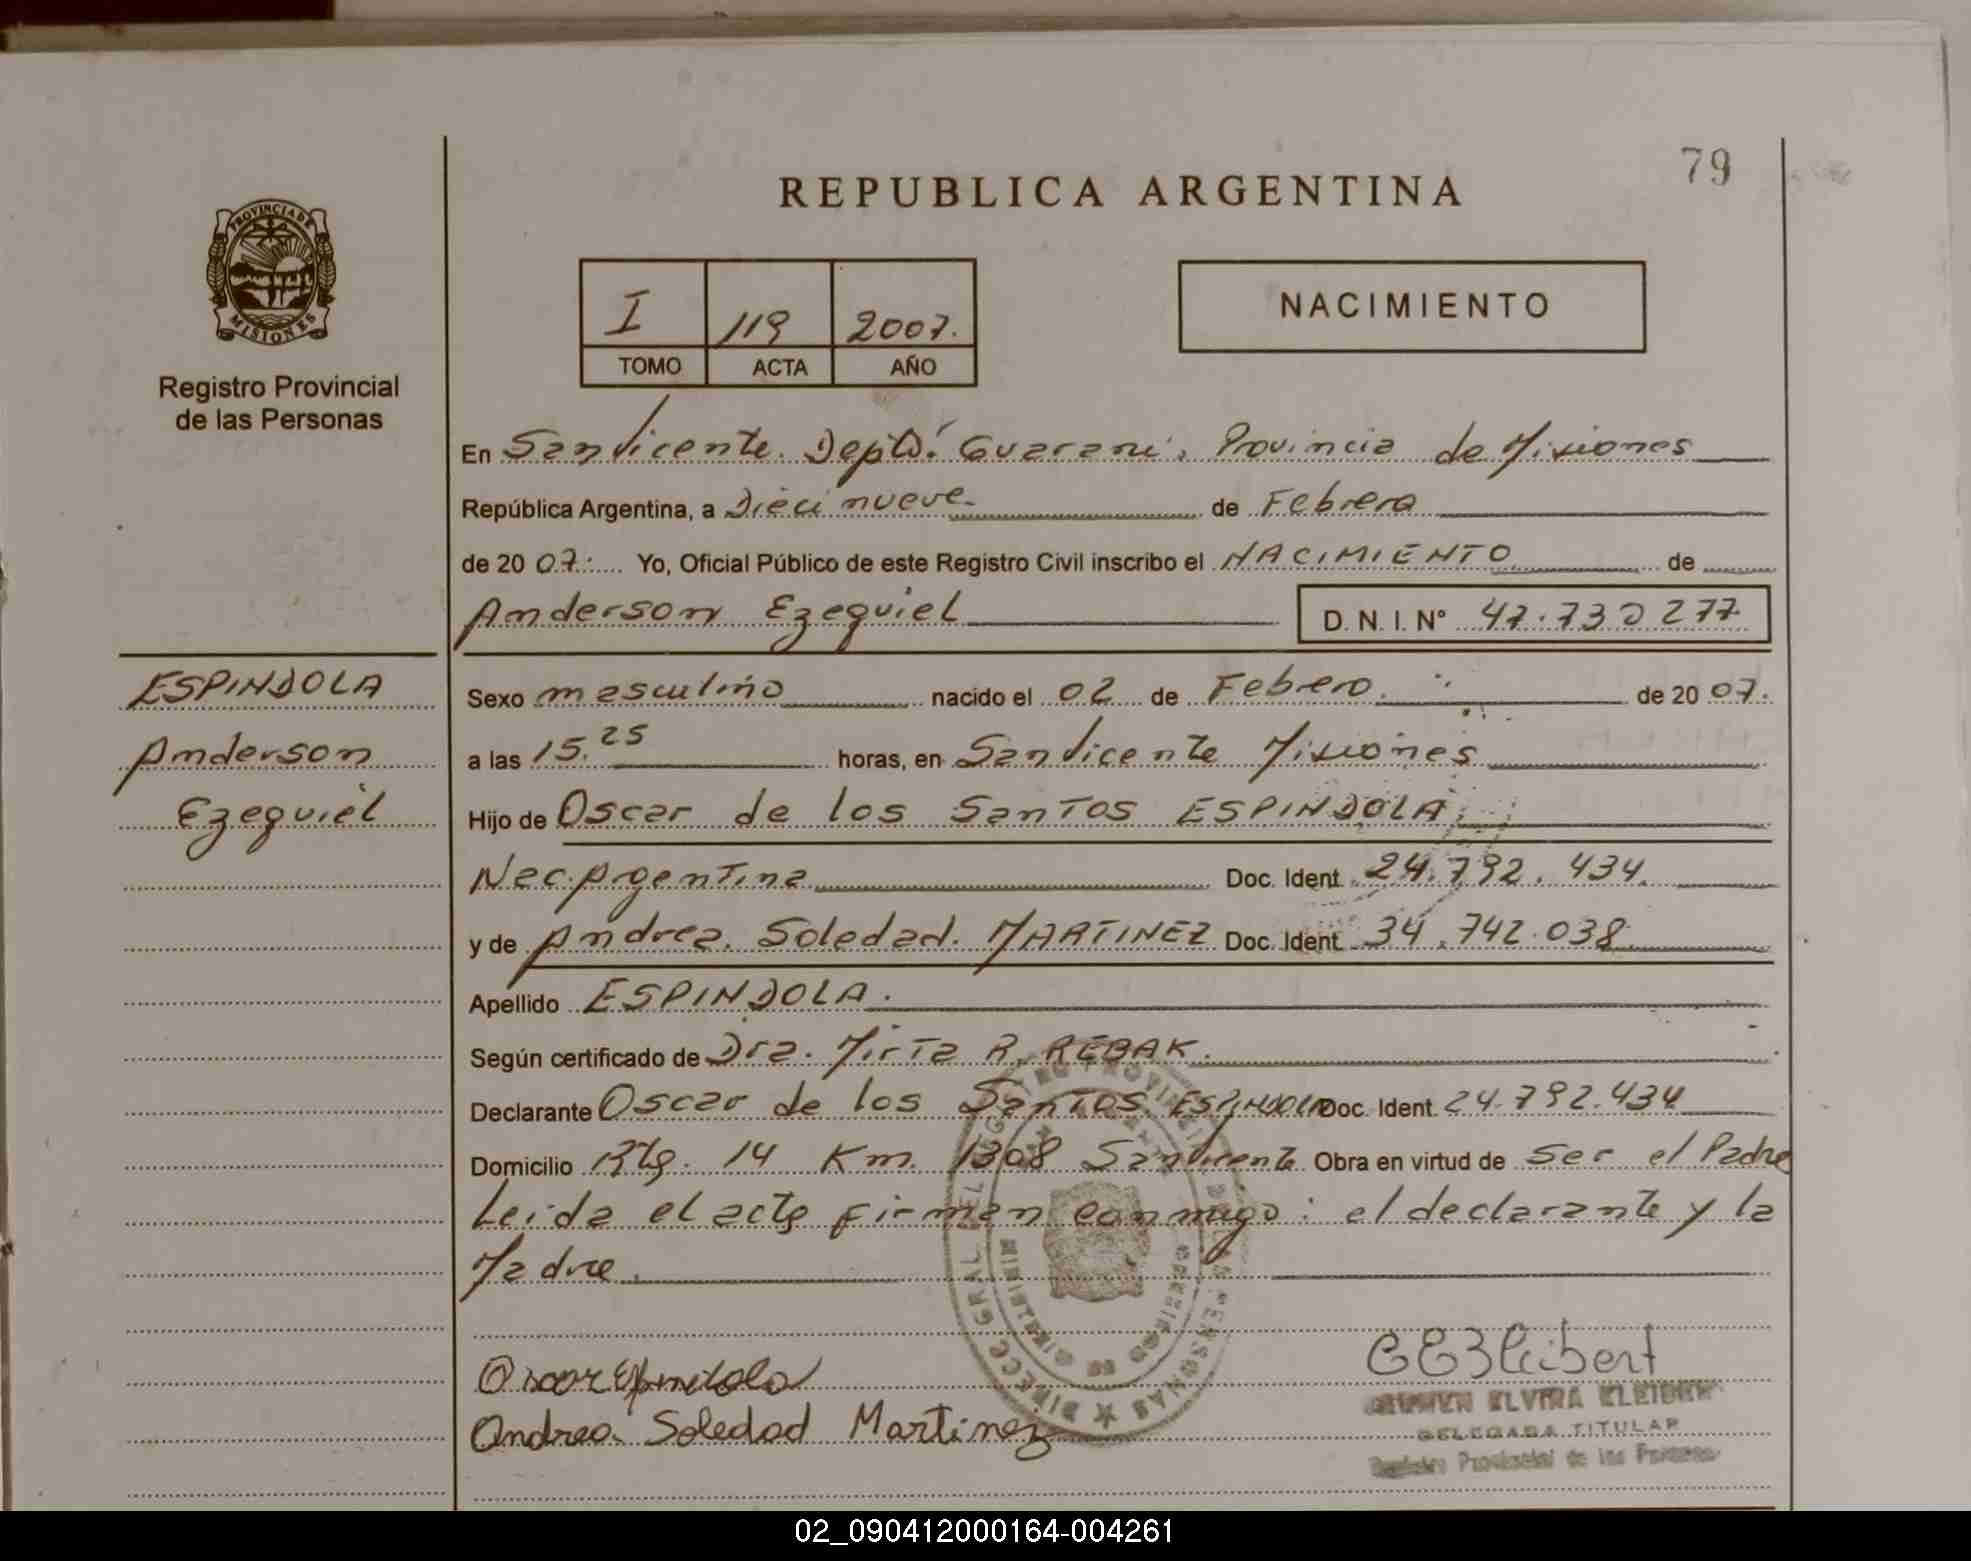 79
REPUBLICA ARGENTINA
PROVINCIA DE
MISIONES
Registro Provincial
de las Personas
I 119 2007.
TOMO ACTA AÑO
NACIMIENTO
En San Vicente. Depto. Guarani, Provincia de Misiones
República Argentina, a Dieci nueve. de Febrero
de 2007. Yo, Oficial Público de este Registro Civil inscribo el NACIMIENTO de
Anderson Ezequiel D. N. I. Nº 47.730277
ESPINDOLA
Anderson
Ezequiel
Sexo masculino nacido el 02 de Febrero. de 2007.
a las 15.25 horas, en San Vicente Misiones
Hijo de Oscar de los Santos ESPINDOLA
Nac. Argentina Doc. Ident. 24.792.434.
y de Andrea Soledad. MARTINEZ Doc. Ident. 34.742.038
Apellido ESPINDOLA.
Según certificado de Dra. Mirta R. REBAK.
Declarante Oscar de los Santos ESPINDOLA Doc. Ident. 24.792.434
Domicilio Rta. 14 Km. 1308 San Vicente Obra en virtud de Ser el Padre
Leida el acta firman conmigo: el declarante y la
Madre.
Oscar Espindola
Andrea Soledad Martinez
ELVIRA
DELEGADA TITULAR
Registro Provincial de las Personas
02_090412000164-004261